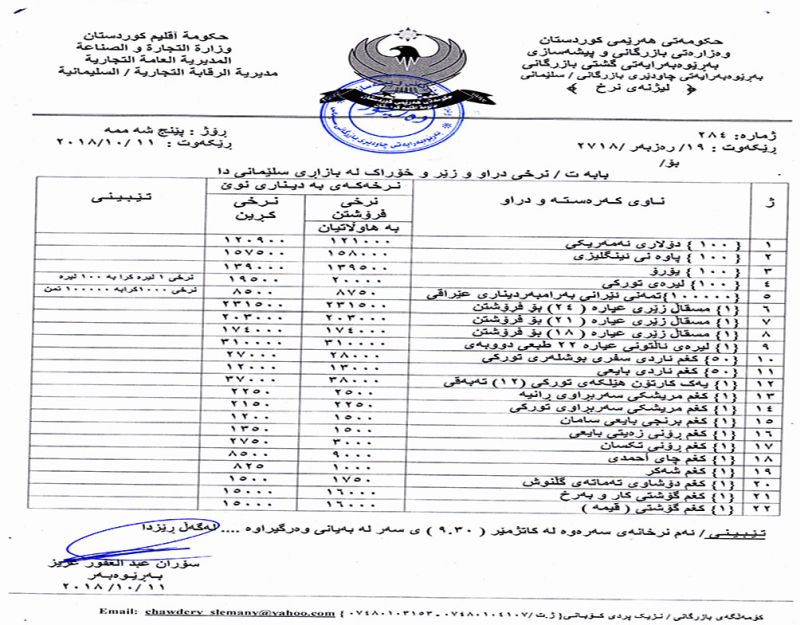 حکومەتی هەرێمی کوردستان
وەزارەتی بازرگانی و پیشەسازی
بەڕێوەبەرایەتی گشتی بازرگانی
بەڕێوەبەرایەتی چاودێری بازرگانی / سلێمانی
﴿ لیژنەی نرخ ﴾
حكومة أقليم كوردستان
وزارة التجارة و الصناعة
المديرية العامة التجارية
مديرية الرقابة التجارية / السليمانية
ژمارە: ٢٨٤
ڕێکەوت : ١٩/ ڕەزبەر /٢٧١٨
بۆ/
ڕۆژ : پێنج شەممە
ڕێکەوت : ٢٠١٨/١٠/١١
بابەت / نرخی دراو و زێر و خۆراک لە بازاڕی سلێمانی دا
ژ ناوی کەرەستە و دراو نرخەکەی بە دیناری نوێ تێبینی
نرخی فرۆشتن بە هاوڵاتیان نرخی کڕین
١ {١٠٠} دۆلاری ئەمەریکی ١٢١٠٠٠ ١٢٠٩٠٠
٢ {١٠٠} پاوەنی ئینگلیزی ١٥٨٠٠٠ ١٥٧٥٠٠
٣ {١٠٠} یۆرۆ ١٣٩٥٠٠ ١٣٩٠٠٠
٤ {١٠٠} لیرەی تورکی ٢٠٠٠٠ ١٩٥٠٠ نرخی ١ لیرە کرا بە ١٠٠ لیرە
٥ {١٠٠٠٠٠} تمەنی ئێرانی بەرامبەر دیناری عێراقی ٨٧٥٠ ٨٥٠٠ نرخی ١٠٠٠ کرابە ١٠٠٠٠٠ تمن
٦ {١} مسقاڵ زێڕی عیارە (٢٤) بۆ فرۆشتن ٢٣١٥٠٠ ٢٣١٥٠٠
٧ {١} مسقاڵ زێڕی عیارە (٢١) بۆ فرۆشتن ٢٠٣٠٠٠ ٢٠٣٠٠٠
٨ {١} مسقاڵ زێڕی عیارە (١٨) بۆ فرۆشتن ١٧٤٠٠٠ ١٧٤٠٠٠
٩ {١} لیرەی ئاڵتونی عیارە ٢٢ طبعي دووبەی ٣١٠٠٠٠ ٣١٠٠٠٠
١٠ {٥٠} کغم ئاردی سفری بوشلەری تورکی ٢٨٠٠٠ ٢٧٠٠٠
١١ {٥٠} کغم ئاردی بایعی ١٣٠٠٠ ١٢٠٠٠
١٢ {١} یەک کارتۆن هێلکەی تورکی (١٢) تەبەقی ٣٨٠٠٠ ٣٧٠٠٠
١٣ {١} کغم مریشکی سەربڕاوی ڕانیە ٢٥٠٠ ٢٢٥٠
١٤ {١} کغم مریشکی سەربڕاوی تورکی ٢٢٥٠ ٢١٥٠
١٥ {١} کغم برنجی بایعی سامان ١٥٠٠ ١٢٠٠
١٦ {١} کغم ڕۆنی زەیتی بایعی ١٥٠٠ ١٣٥٠
١٧ {١} کغم ڕۆنی تکسان ٣٠٠٠ ٢٧٥٠
١٨ {١} کغم چای أحمدی ٩٠٠٠ ٨٥٠٠
١٩ {١} کغم شەکر ١٠٠٠ ٨٢٥
٢٠ {١} کغم دۆشاوی تەماتەی گڵنوش ١٧٥٠ ١٥٠٠
٢١ {١} کغم گۆشتی کار و بەرخ ١٦٠٠٠ ١٥٠٠٠
٢٢ {١} کغم گۆشتی ( قیمە ) ١٦٠٠٠ ١٥٠٠٠
تێبینی / ئەم نرخانەی سەرەوە لە کاتژمێر ( ٩.٣٠ ) ی سەر لە بەیانی وەرگیراوە .... لەگەڵ ڕێزدا
سۆران عبدالغفور عزیز
بەڕێوەبەر
٢٠١٨/١٠/١١
کۆمەڵگەی بازرگانی / نزیک پردی کۆبانی { ژ.ت / ٠٧٤٨٠١٠٤١٠٧ - ٠٧٤٨٠١٠٣١٥٣ } Email: chawdery_slemany@yahoo.com